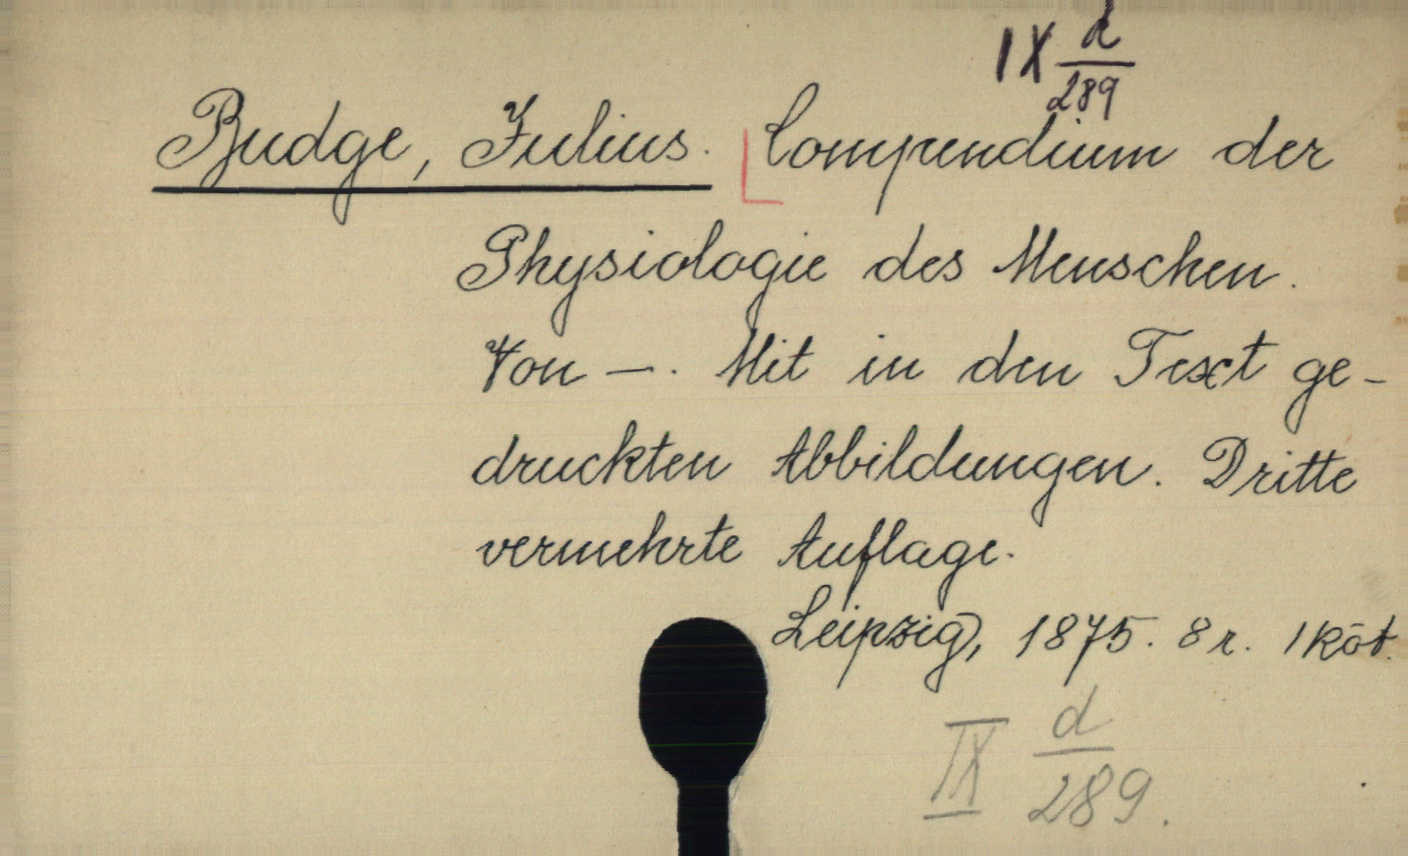 IX d/289
Budge, Julius. Compendium der
Physiologie des Menschen.
Von —. Mit in den Text ge-
druckten Abbildungen. Dritte
vermehrte Auflage.
Leipzig, 1875. 8 r. 1 köt.
IX d/289.